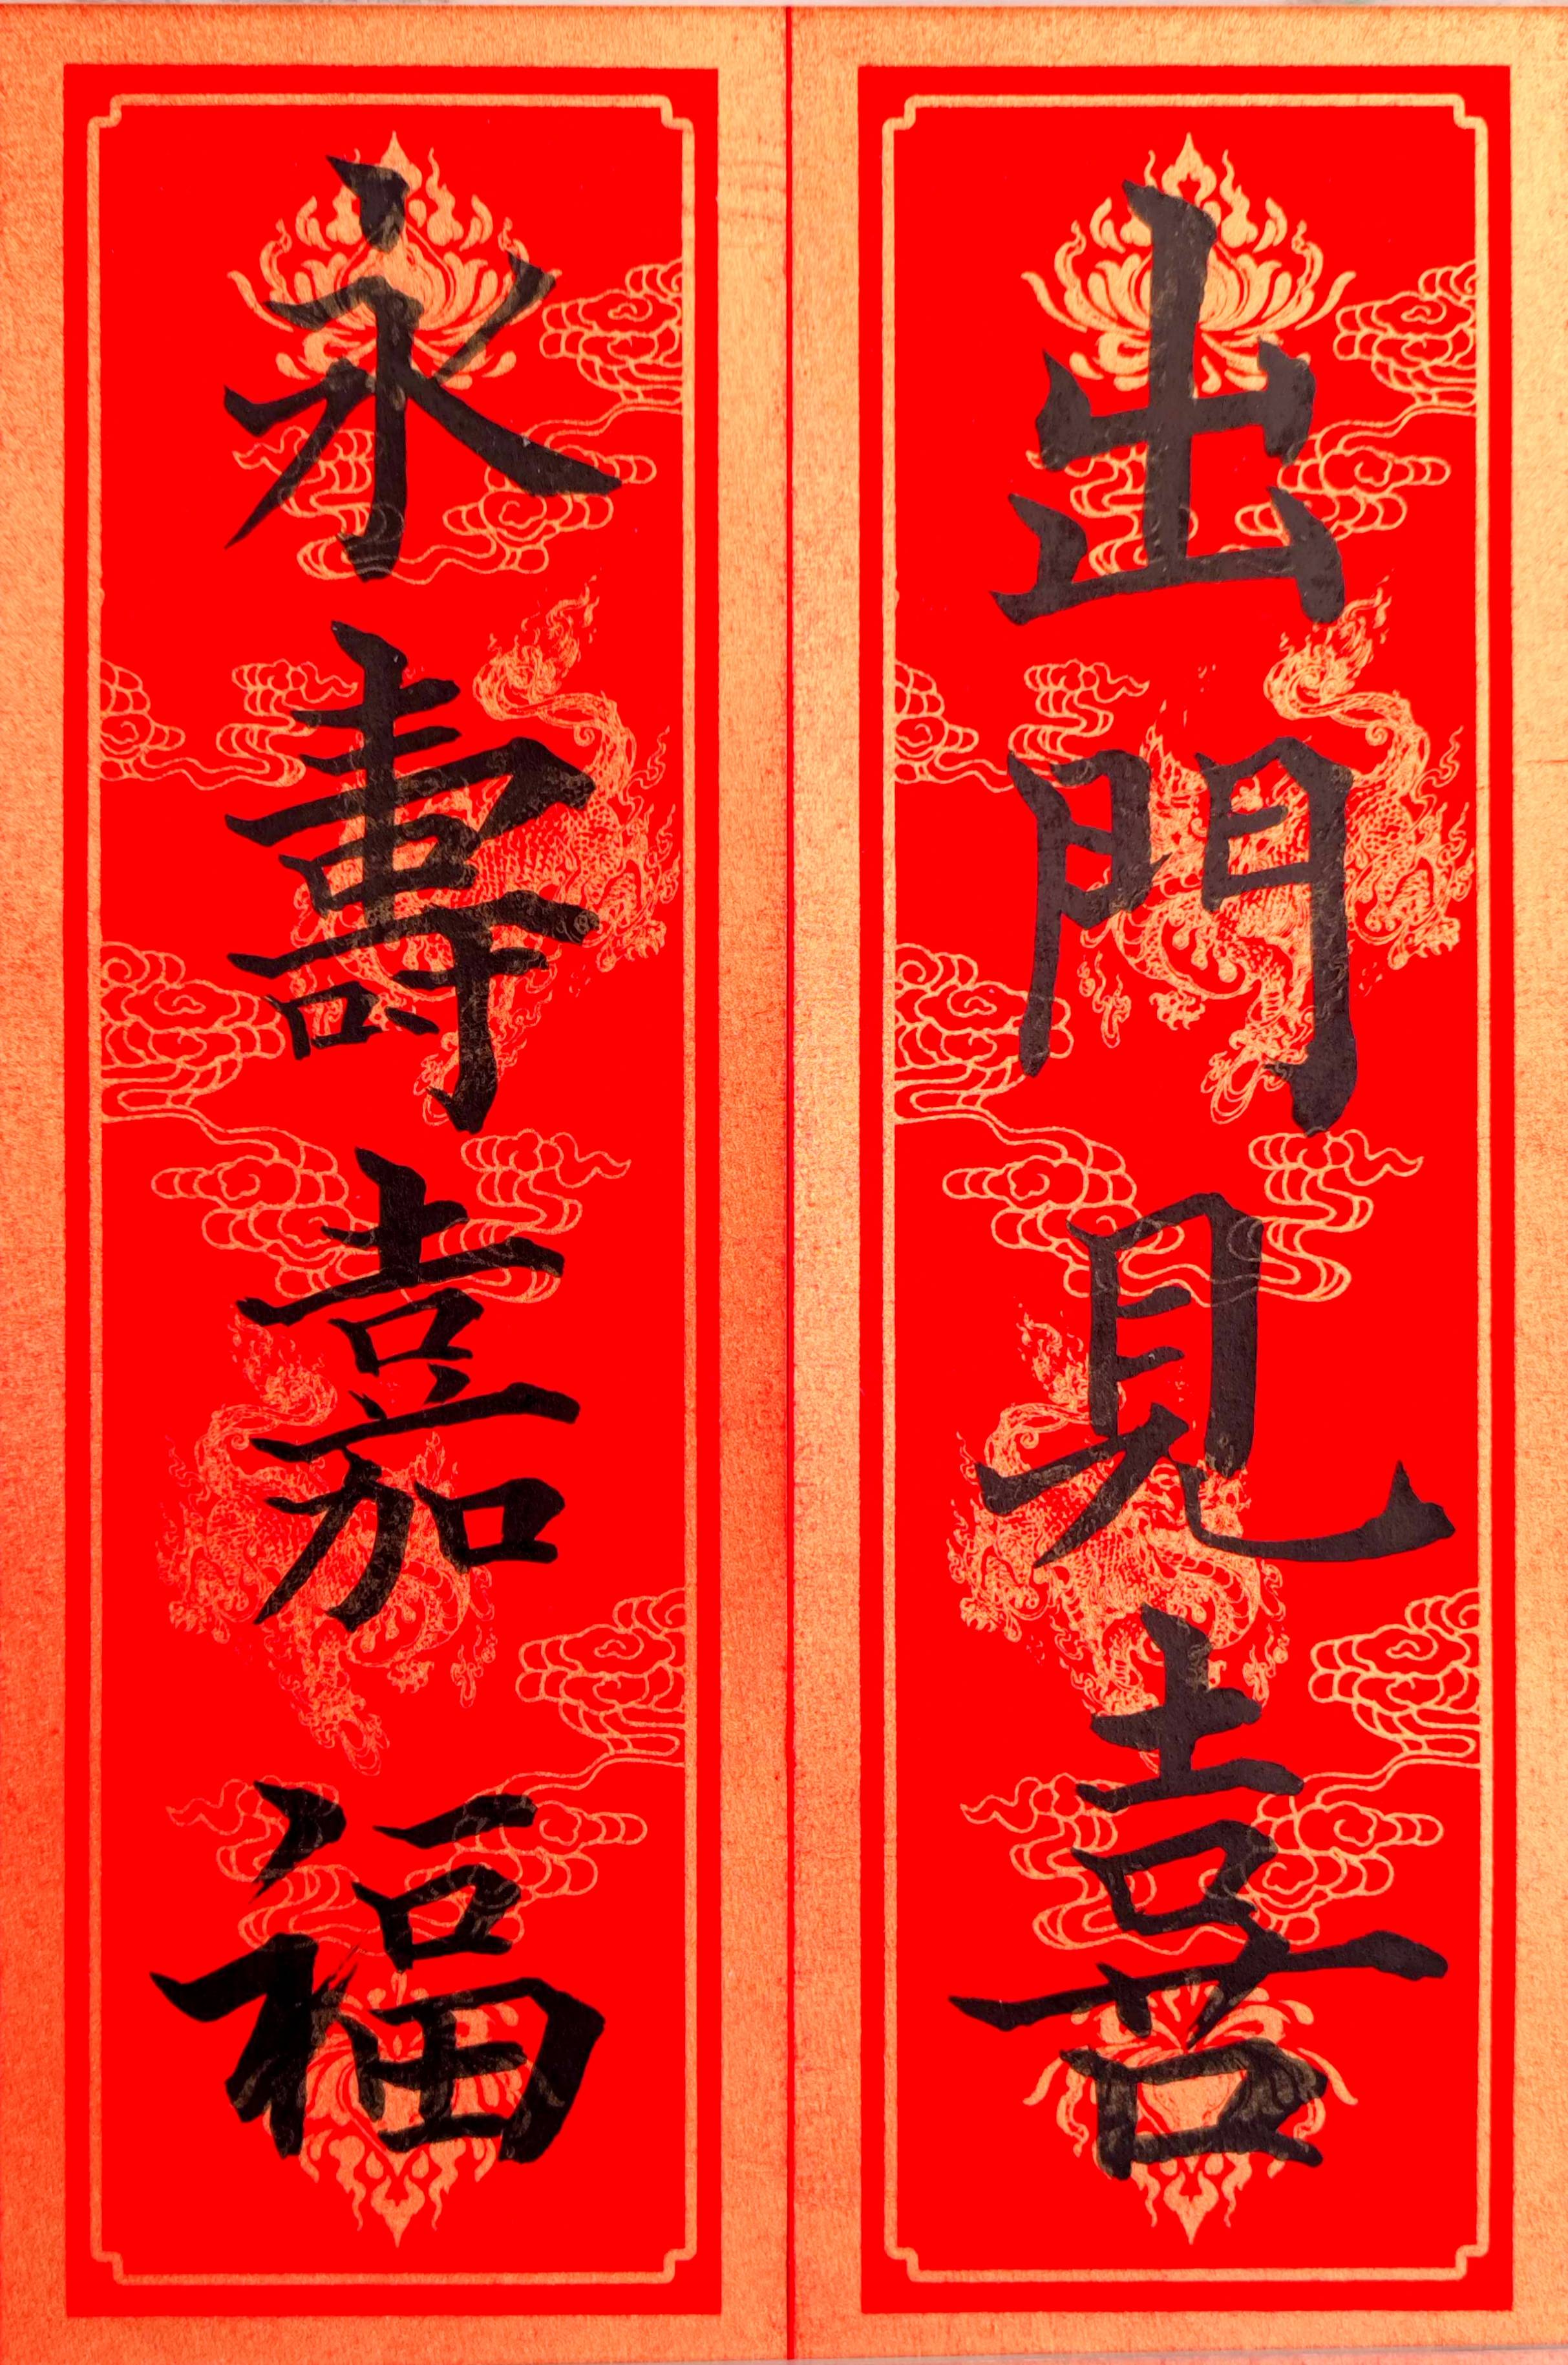 出門見喜
永壽嘉福